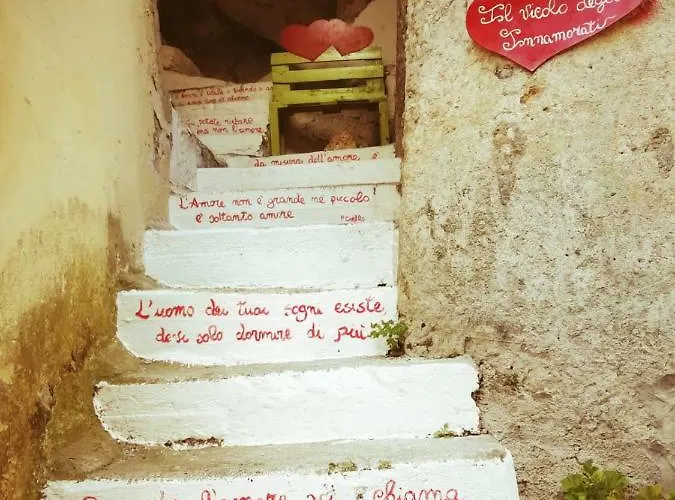 Il vicolo degli
Innamorati
potete rubare
ma non l'amore
da misura dell'amore è
L'Amore non è grande ne piccolo!
è soltanto amore
L'uomo dei tuoi sogni esiste,
devi solo dormire di più
l'amore vi chiama